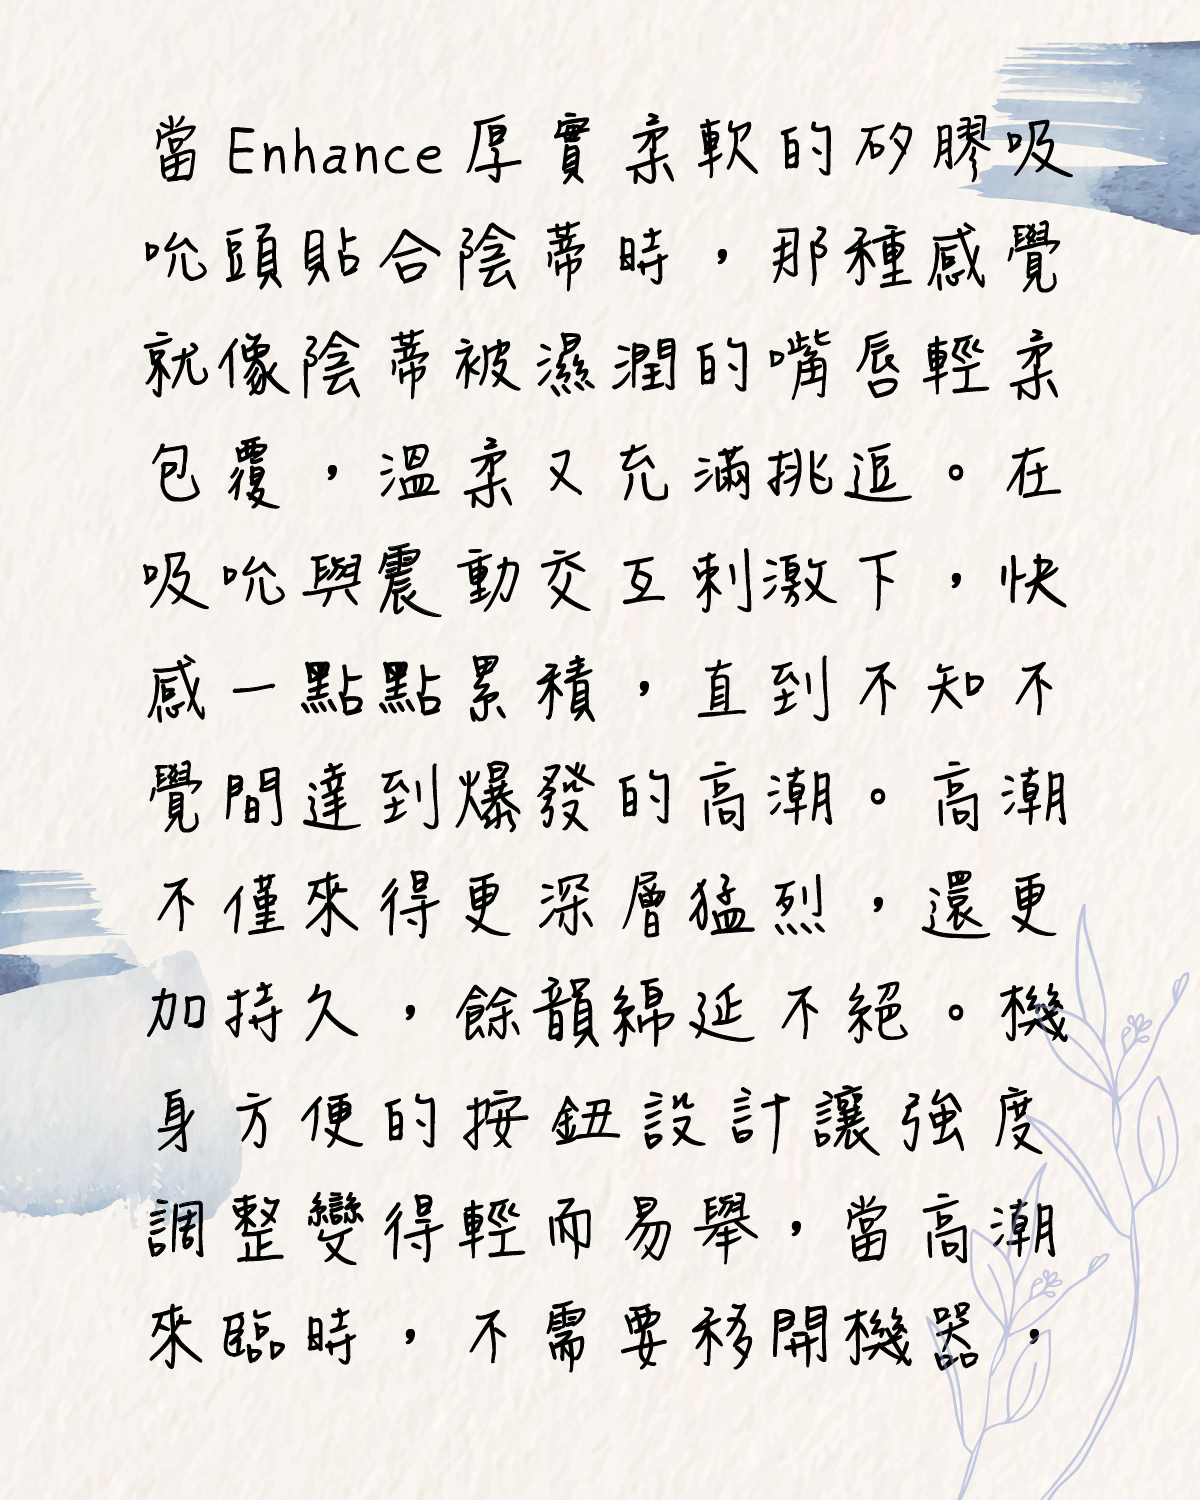 當Enhance厚實柔軟的矽膠吸
吮頭貼合陰蒂時，那種感覺
就像陰蒂被濕潤的嘴唇輕柔
包覆，溫柔又充滿挑逗。在
吸吮與震動交互刺激下，快
感一點點累積，直到不知不
覺間達到爆發的高潮。高潮
不僅來得更深層猛烈，還更
加持久，餘韻綿延不絕。機
身方便的按鈕設計讓強度
調整變得輕而易舉，當高潮
來臨時，不需要移開機器，